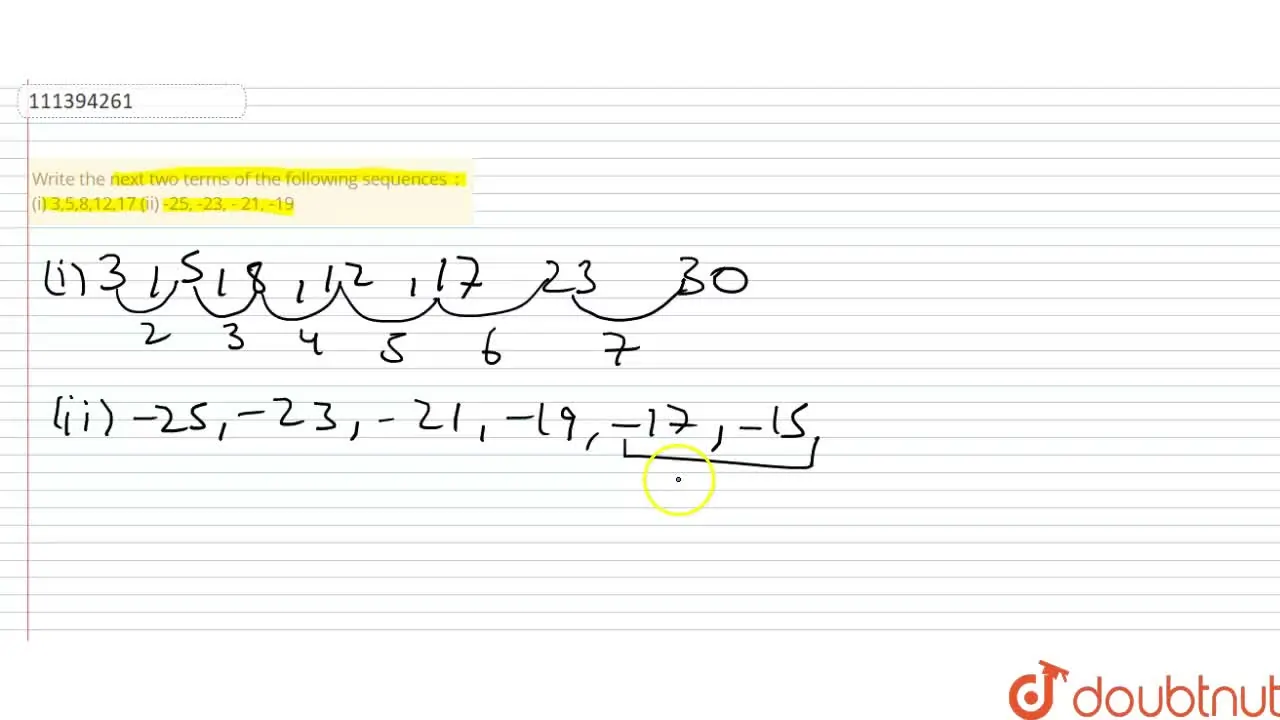 111394261
Write the next two terms of the following sequences :
(i) 3,5,8,12,17 (ii) -25, -23, - 21, -19
(i) 3 , 5 , 8 , 12 , 17 23 30
2 3 4 5 6 7
(ii) -25, -23, -21, -19, -17, -15,
doubtnut